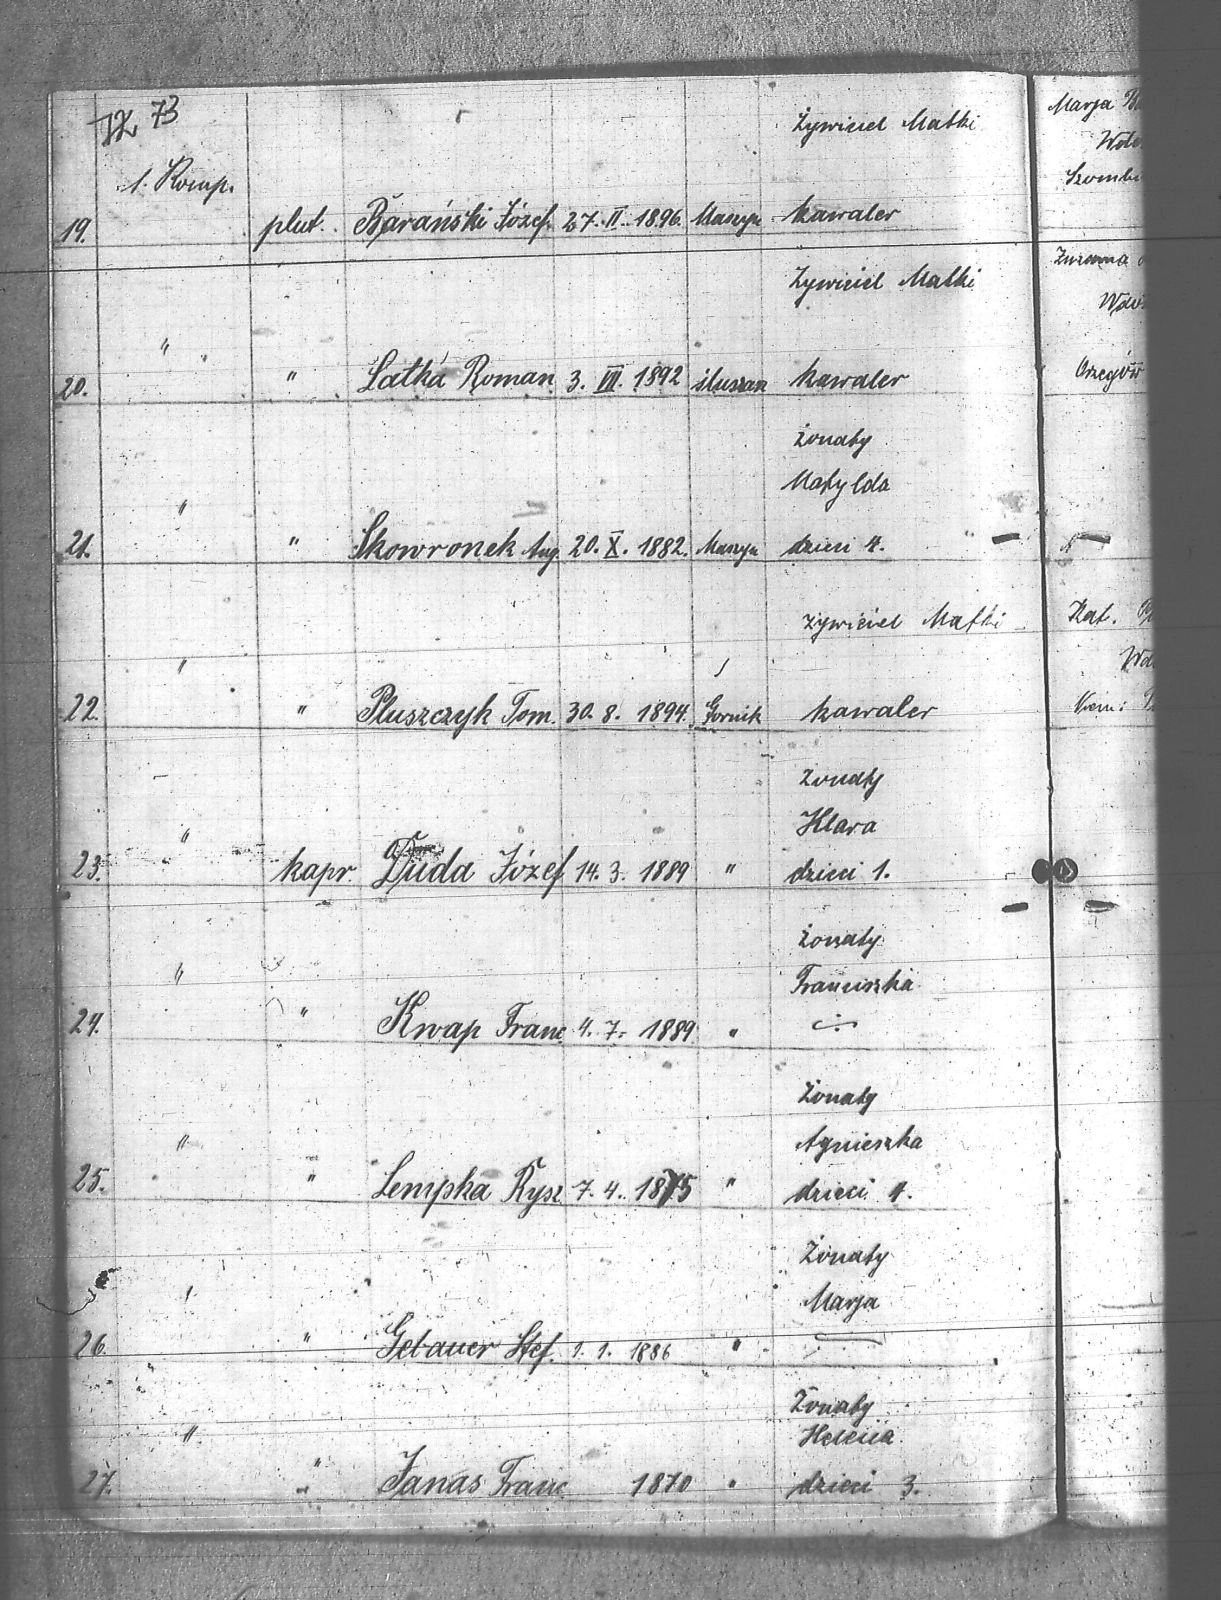 73
Żywiciel Matki
Marja
1. Komp.
19. plut. Barański Józef 27. II. 1896. Maszyn kawaler
Żywiciel Matki
Zuzanna
" "
20. " Latka Roman 3. VII. 1892 ślusarz kawaler
Orzegów
żonaty
Matylda
"
21. " Skowronek Aug. 20. X. 1882. Maszyn dzieci 4.
żywiciel Matki
Kat.
"
22. " Pluszczyk Tom. 30. 8. 1894. Gornik kawaler
Żonaty
Klara
"
23. kapr. Duda Józef 14. 3. 1889 " dzieci 1.
żonaty
Franciszka
"
24. " Kwap Franc 4. 7. 1889 "
Żonaty
Agnieszka
"
25. " Lempka Rysz 7. 4. 1875 " dzieci 4.
Żonaty
Marja
26. " Gebauer Stef. 1. 1. 1886 "
Żonaty
" Helena
27. " Janas Franc 1870 " dzieci 3.